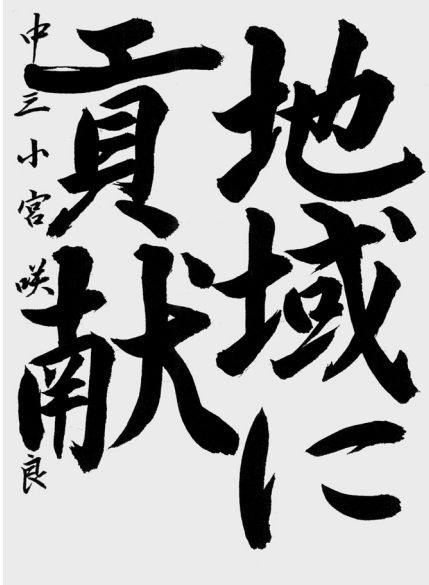 地域に
貢献
中三 小宮 咲良